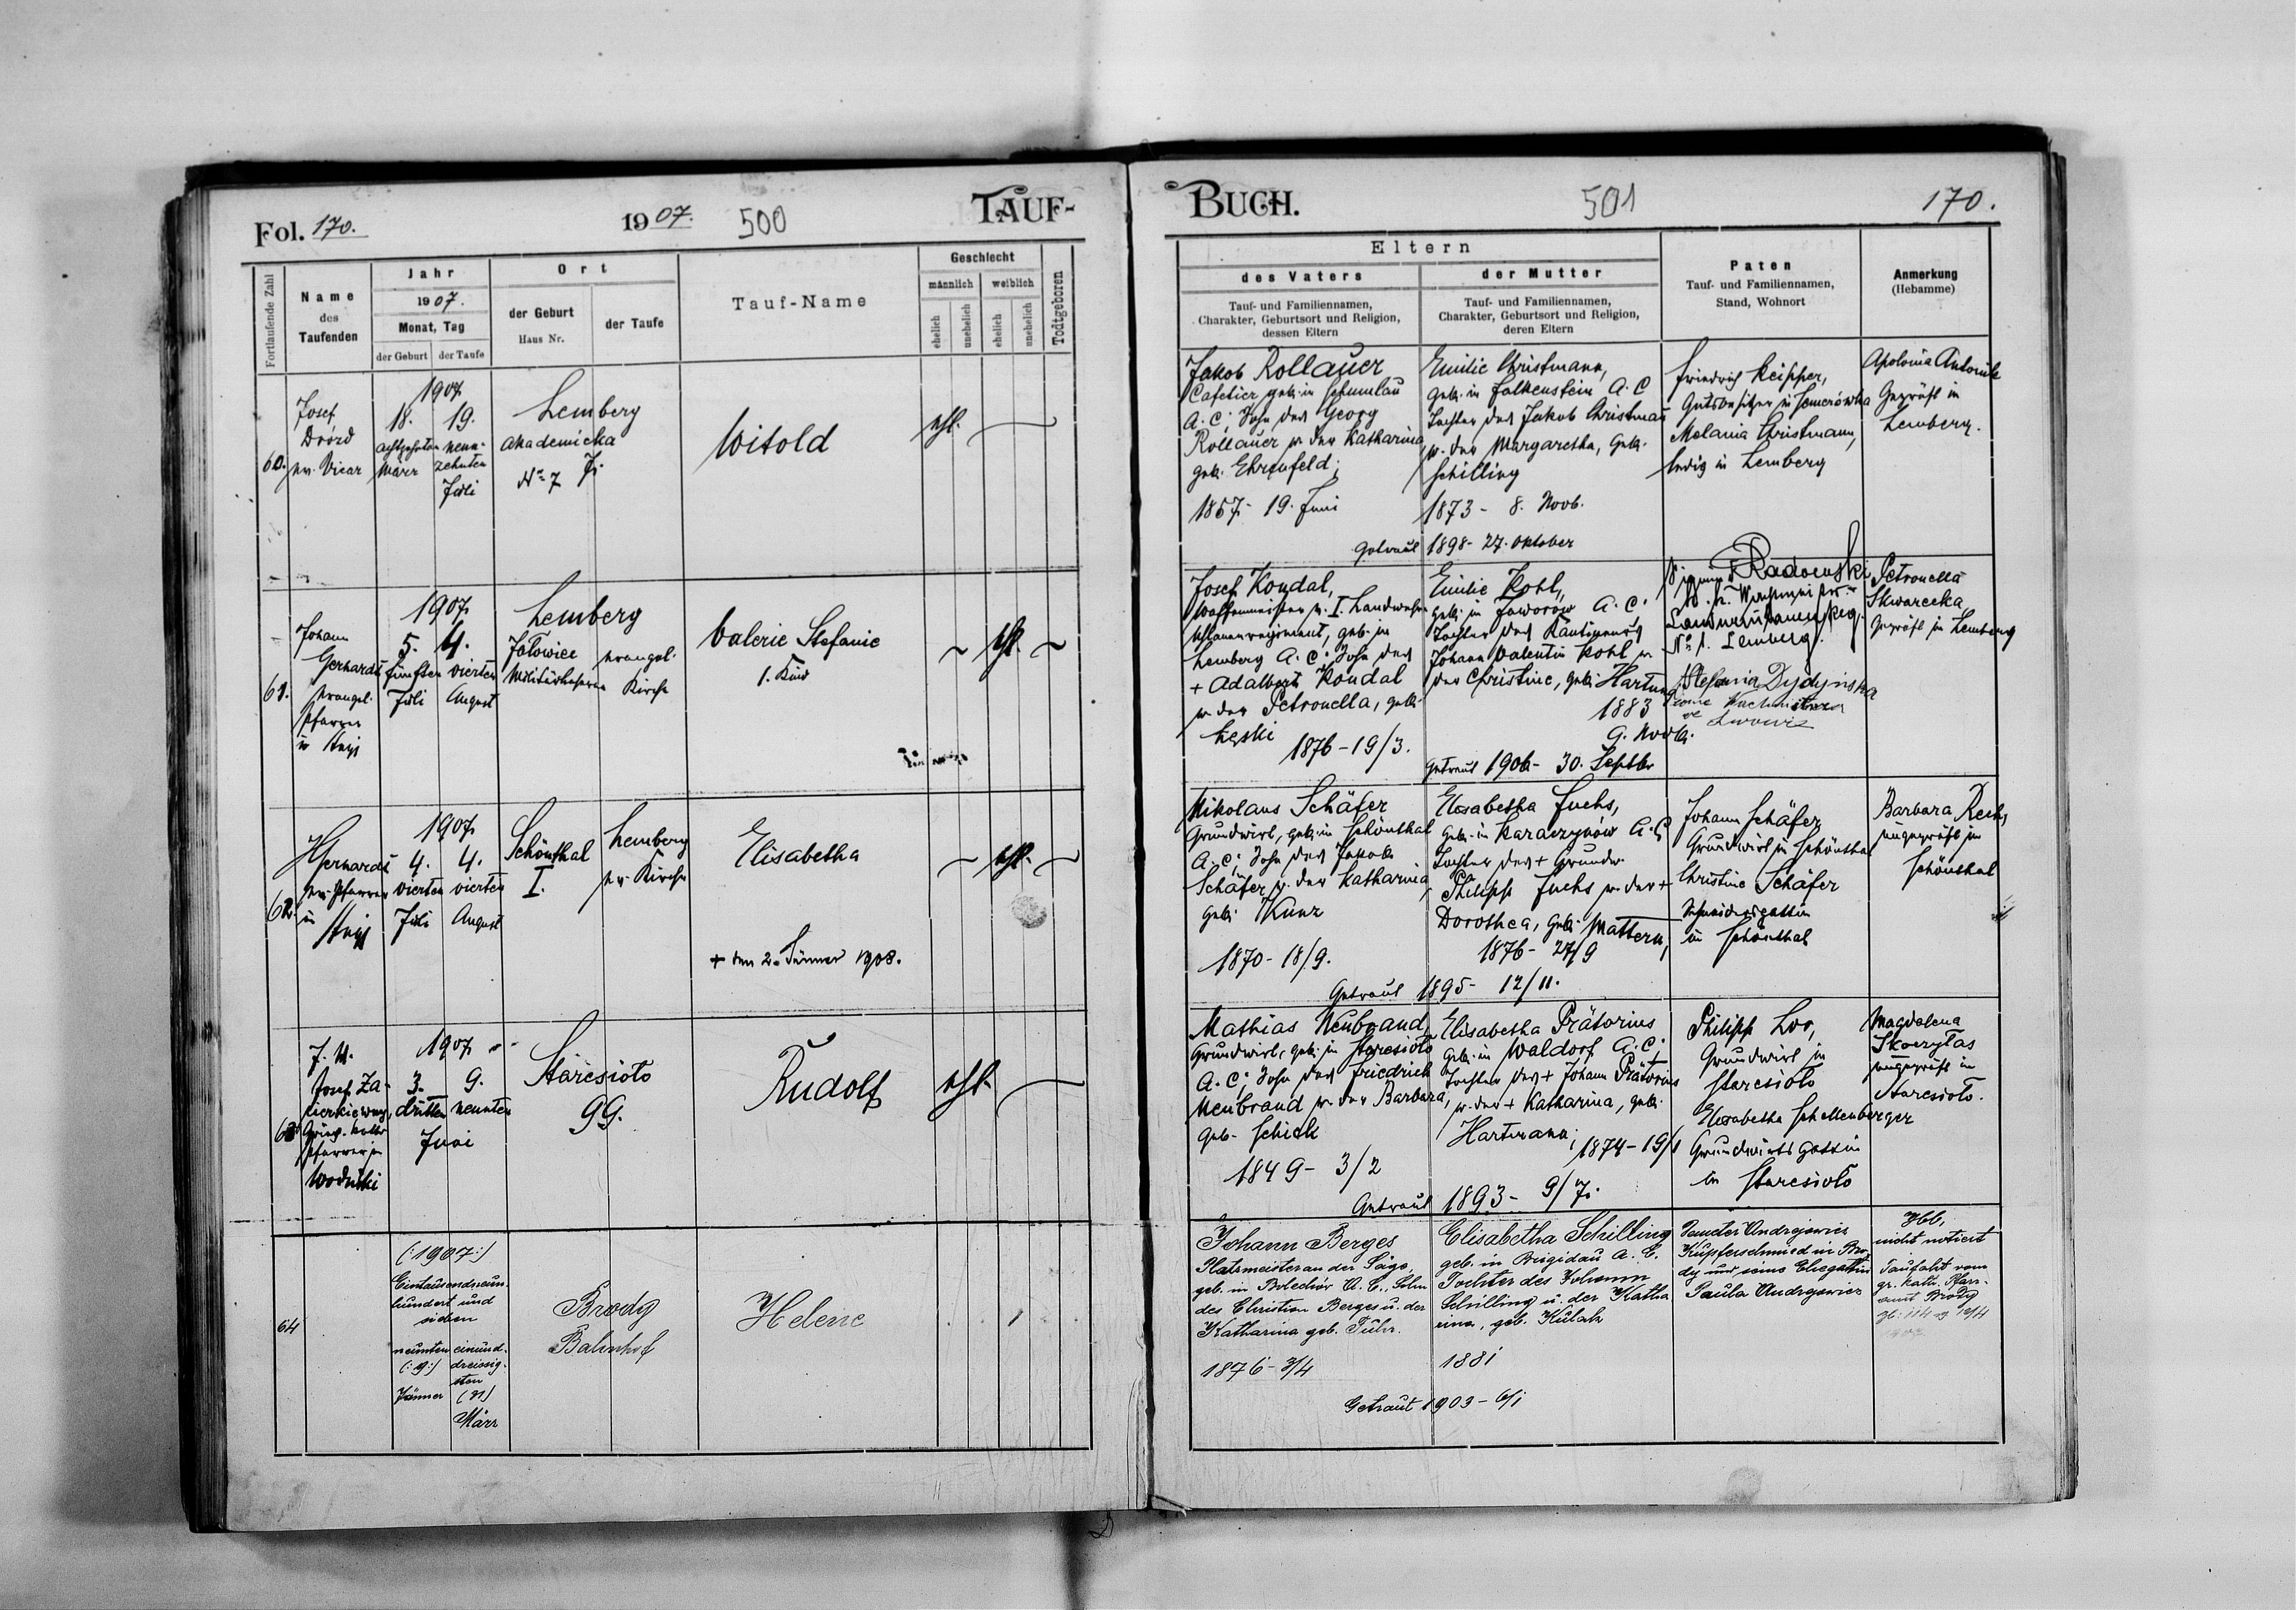 Fol. 170.
1907.
500
TAUF-
Fortlaufende Zahl
Name
des
Taufenden
Jahr
1907.
Monat, Tag
der Geburt
der Taufe
Ort
der Geburt
Haus Nr.
der Taufe
Tauf-Name
Geschlecht
männlich
weiblich
ehelich
unehelich
ehelich
unehelich
Todtgeboren
60.
Josef
ev. Vicar
1907
18.
achtzehnten
März
19.
neun-
zehnten
Juli
Lemberg
akademicka
No 7
Witold
ehl.
61.
Johann
Gerhardt
evangel.
Pfarrer
in Stryj
1907
5.
fünften
Juli
4.
vierten
August
Lemberg
evangel.
Kirche
Valerie Stefanie
1. Kind
ehl.
62.
Gerhardt
ev. Pfarrer
in
Stryj
1907
4.
vierten
Juli
4.
vierten
August
Schönthal
I.
Lemberg
ev. Kirche
Elisabetha
+ den 2. Jänner 1908.
ehl.
J. U.
Josef Za-
Pfarrer in
1907
3.
dritten
9.
neunten
Juni
Staresioło
99.
Rudolf
ehl.
64
(:1907:)
Eintausendneun-
hundert und
sieben
neunten
(:9:)
Jänner
einund-
dreissig-
sten
(31)
März
Brody
Bahnhof
Helene
BUCH.
501
170.
Eltern
des Vaters
Tauf- und Familiennamen,
Charakter, Geburtsort und Religion,
dessen Eltern
der Mutter
Tauf- und Familiennamen,
Charakter, Geburtsort und Religion,
deren Eltern
Paten
Tauf- und Familiennamen,
Stand, Wohnort
Anmerkung
(Hebamme)
Jakob Rollauer
Cafetier geb. in
A. C., Sohn des Georg
Rollauer u. der Katharina,
geb. Ehrenfeld;
19. Juni
Emilie Christmann,
geb. in Falkenstein A. C
Tochter des Jakob Christmann
u. der Margaretha, geb.
Schilling
1873 - 8. Novb.
Getraut 1898 - 27. Oktober
Friedrich Keipper,
Gutsbesitzer in
Melania Christmann,
ledig in Lemberg
Apolonia
Geprüft in
Lemberg.
Josef Kondal,
Waffenmeister Landwehr
Uhlanenregiment, geb. in
Lemberg A. C., Sohn des
+ Adalbert Kondal
u. der Petronella, geb.
Łęski
1876 - 19/3.
Emilie Kohl,
geb. in Jaworow A. C.
Tochter des
Johann Valentin Kohl u.
der Christine, geb. Hartung
1883
9. Novb.
Getraut 1906 - 30. Septbr
Radomski
No 1. Lemberg.
Stefania Dydyńska
Petronella
Skwarecka
geprüft in Lemberg
Mikolaus Schäfer
Grundwirt, geb. in Schönthal
A. C., Sohn des Jakob
Schäfer u. der Katharina,
geb. Kunz
1870 - 18/9.
Elisabetha Fuchs,
geb. in Karaczynów A. C
Tochter des + Grundw.
Philipp Fuchs u. der +
Dorothea, geb. Mattern,
1876 - 27/9
Getraut 1895 - 12/11.
Johann Schäfer
Grundwirt in Schönthal
Christine Schäfer
Schneidersgattin
in Schönthal
Barbara Rech,
ungeprüft in
Schönthal
Mathias Neubrand,
Grundwirt, geb. in Staresioło
A. C., Sohn des Friedrich
Neubrand u. der Barbara,
geb. Schick
1849 - 3/2
Elisabetha Prätorius
geb. in Waldorf A. C.;
Tochter des + Johann Prätorius
u. der + Katharina, geb.
Hartmann;
1874 - 19/1
Getraut 1893 - 9/7.
Philipp Loo,
Grundwirt in
Staresioło
Elisabetha Schellenberger
Grundwirtsgattin
in Staresioło
Magdalena
Skoczylas
ungeprüft in
Staresioło.
Johann Berges
Platzmeister an der Säge,
geb. in Bolechów A. C. Sohn
des Christian Berges u. der
Katharina geb. Führ.
1876 - 3/4
Elisabetha Schilling
geb. in Brigidau A. C.
Tochter des Johann
Schilling u. der Katha
rina, geb. Kulak
1881
Getraut 1903 - 6/1
Andrejowicz
Kupferschmied in Bro-
dy und seine Ehegattin
Paula Andrejowicz
Hbb,
nicht notiert
Taufakt vom
gr. kath. Pfarr-
amt Brody